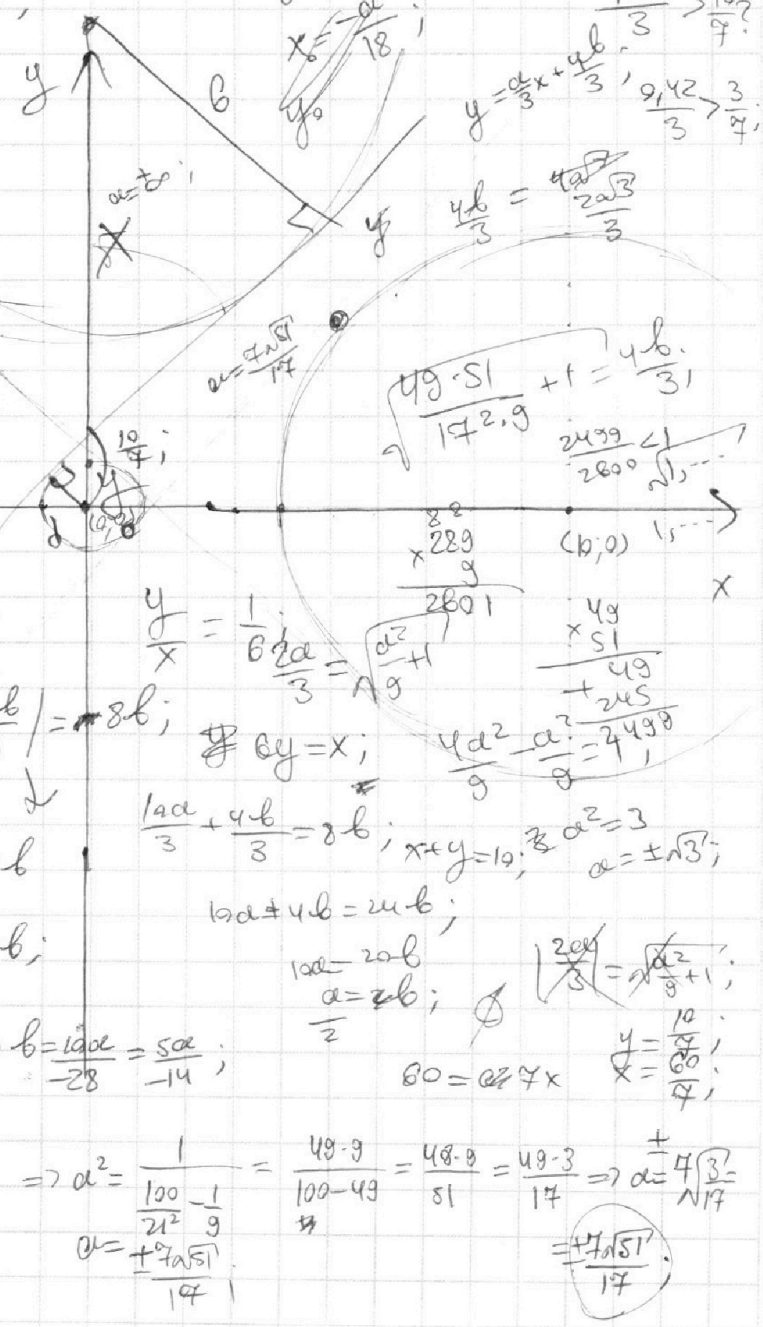 x₀ = -a/18;
/3 > 10/7?
y
6
y₀
y = a/3 x + 4b/3;
9,42/3 > 3/7;
a = ±∞;
4b/3 = 2a√3/3
y
a = 7√51/17
√(49·51/(17²·9) + 1) = 4b/3;
10/7;
2499/2600 < 1
√1,...
1,...
(b;0)
x
289
× 9
2601
y/x = 1/6;
2a/3 = √(a²/9 + 1)
× 49
51
+ 49
245
2499
| = 8b;
6y = x;
4a²/9 - a²/9 = 1;
10a/3 + 4b/3 = 8b;
x + y = 10;
a² = 3
a = ±√3;
b
10a + 4b = 24b;
b;
10a = 20b
|2a/3| = √(a²/9 + 1);
a = 2b;
∅
y = 10/7;
b = 10a/-28 = 5a/-14;
60 = 7x
x = 60/7;
=> a² = 1/(100/21² - 1/9) = 49·9/(100-49) = 49·9/51 = 49·3/17 => a = ±7√(3/17) =
a = ±7√51/17;
= ±7√51/17;